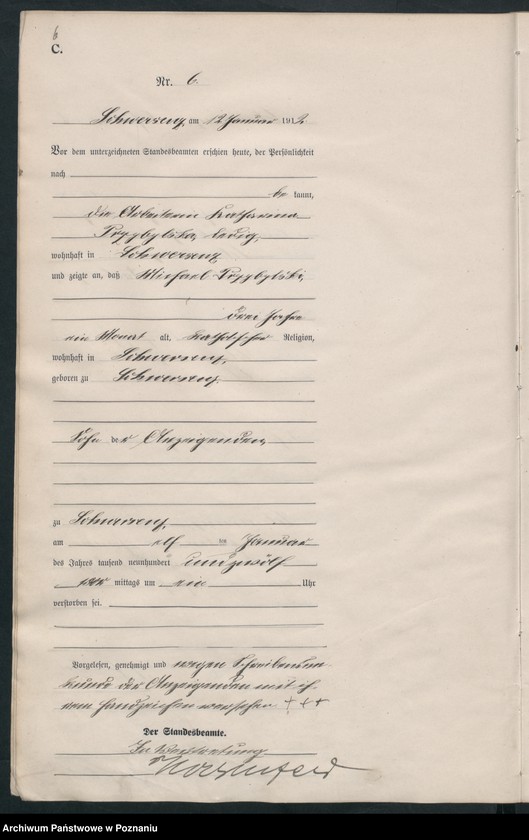 6
C.
Nr. 6
Schwersenz, am 12 Januar 1912
Vor dem unterzeichneten Standesbeamten erschien heute, der Persönlichkeit
nach
be kannt,
die Arbeiterin Katharina
Przybylska, ledig,
wohnhaft in Schwersenz
und zeigte an, daß Michael Przybylski,
drei Jahre
ein Monat alt, katholischer Religion,
wohnhaft in Schwersenz,
geboren zu Schwersenz,
Sohn der Anzeigenden,
zu Schwersenz,
am elf ten Januar
des Jahres tausend neunhundert und zwölf
mittags um ein Uhr
verstorben sei.
Vorgelesen, genehmigt und wegen Schreibensun-
kunde der Anzeigenden mit ih-
rem Handzeichen versehen +++
Der Standesbeamte.
In Vertretung
Archiwum Państwowe w Poznaniu